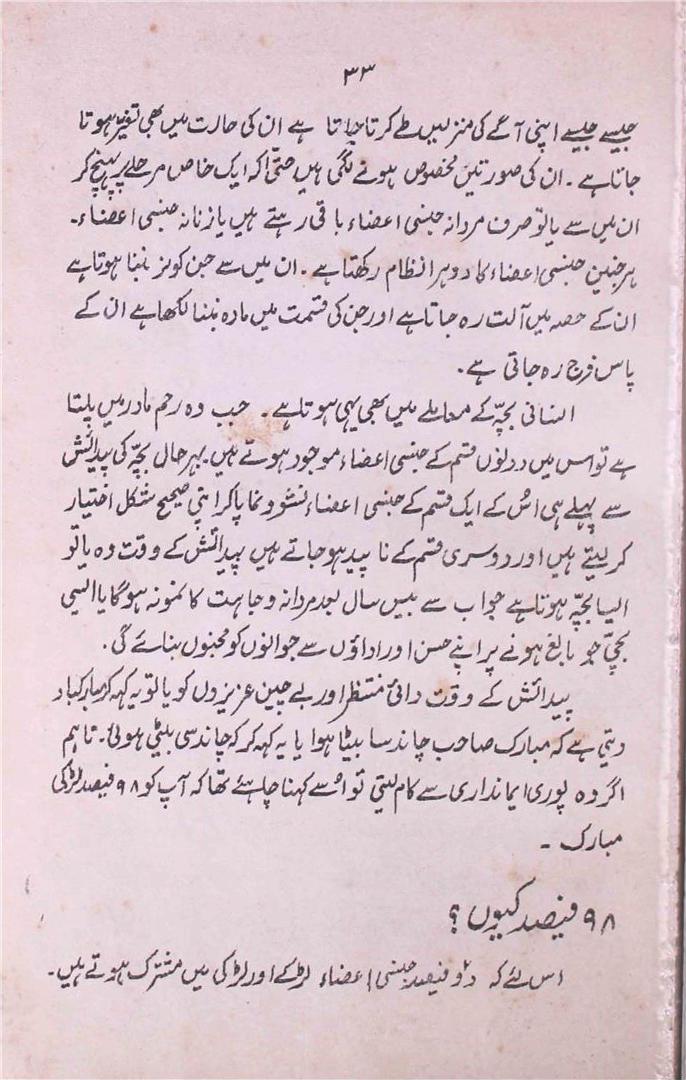 ۳۳
جیسے جیسے اپنی آگے کی منزلیں طے کرتا جاتا ہے ان کی حارت میں بھی تغیر ہوتا
جاتا ہے۔ ان کی صورتیں مخصوص ہونے لگتی ہیں حتیٰ کہ ایک خاص مرحلے پر پہنچ کر
ان میں سے یا تو صرف مردانہ جنسی اعضاء باقی رہتے ہیں یا زنانہ جنسی اعضاء۔
ہر جنین جنسی اعضاء کا دوہرا نظام رکھتا ہے۔ ان میں سے جن کو نر بننا ہوتا ہے
ان کے حصہ میں آلت رہ جاتا ہے اور جن کی قسمت میں مادہ بننا لکھا ہے ان کے
پاس فرج رہ جاتی ہے۔
انسانی بچّہ کے معاملے میں بھی یہی ہوتا ہے۔ جب وہ رحم مادر میں پلتا
ہے تو اس میں دونوں قسم کے جنسی اعضاء موجود ہوتے ہیں۔ بہر حال بچّہ کی پیدائش
سے پہلے ہی اُس کے ایک قسم کے جنسی اعضاء نشوونما پا کر اپنی صحیح شکل اختیار
کر لیتے ہیں اور دوسری قسم کے ناپید ہو جاتے ہیں پیدائش کے وقت وہ یا تو
ایسا بچّہ ہوتا ہے جو اب سے بیس سال بعد مردانہ وجاہت کا نمونہ ہوگا یا ایسی
بچّی جو بالغ ہونے پر اپنے حسن اور اداؤں سے جوانوں کو مجنوں بنائے گی۔
پیدائش کے وقت دائی منتظر اور بے چین عزیزوں کو یا تو یہ کہہ کر مبارکباد
دیتی ہے کہ مبارک صاحب چاند سا بیٹا ہوا یا یہ کہہ کر کہ چاند سی بیٹی ہوئی۔ تاہم
اگر وہ پوری ایمانداری سے کام لیتی تو اُسے کہنا چاہئے تھا کہ آپ کو ۹۸ فیصد لڑکی
مبارک ۔
۹۸ فیصد کیوں؟
اس لئے کہ دو فیصد جنسی اعضاء لڑکے اور لڑکی میں مشترک ہوتے ہیں۔